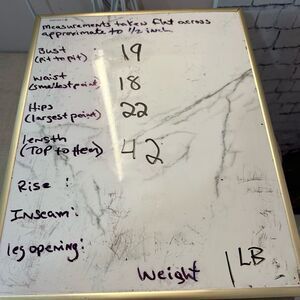 measurements taken flat across
approximate to 1/2 inch
Bust : 19
(Pit to pit)
Waist : 18
(smallest point)
Hips : 22
(largest point)
length : 42
(TOP to Hem)
Rise :
Inseam :
leg opening :
Weight 1LB